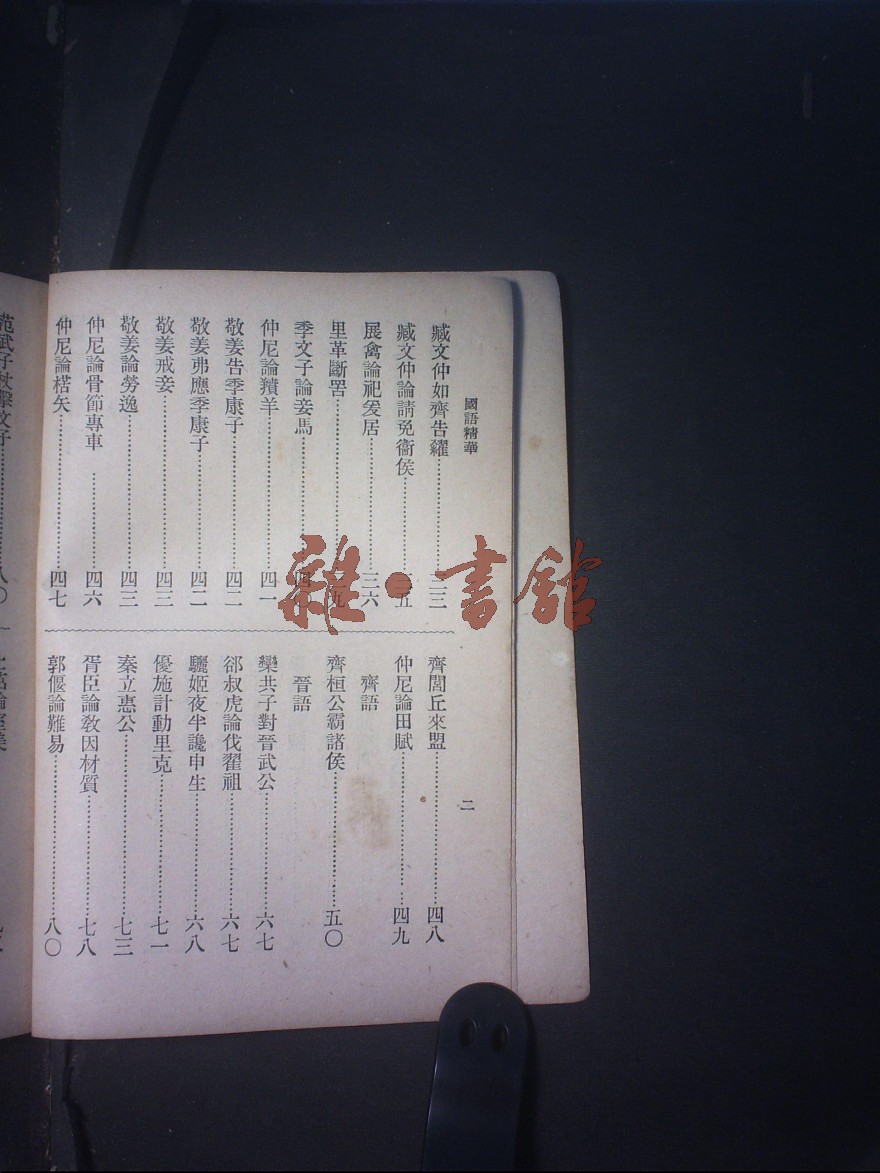 國語精華
二
臧文仲如齊告糴……三三
臧文仲論請免衞侯……三五
展禽論祀爰居……三六
里革斷罟……三九
季文子論妾馬……四
仲尼論羵羊……四一
敬姜告季康子……四二
敬姜弗應季康子……四二
敬姜戒妾……四三
敬姜論勞逸……四三
仲尼論骨節專車……四六
仲尼論楛矢……四七
齊閭丘來盟……四八
仲尼論田賦……四九
齊語
齊桓公霸諸侯……五〇
晉語
欒共子對晉武公……六七
郤叔虎論伐翟柤……六七
驪姬夜半讒申生……六八
優施計動里克……七一
秦立惠公……七三
胥臣論敎因材質……七八
郭偃論難易……八〇
范武子杖擊文子……八〇
雜·書館